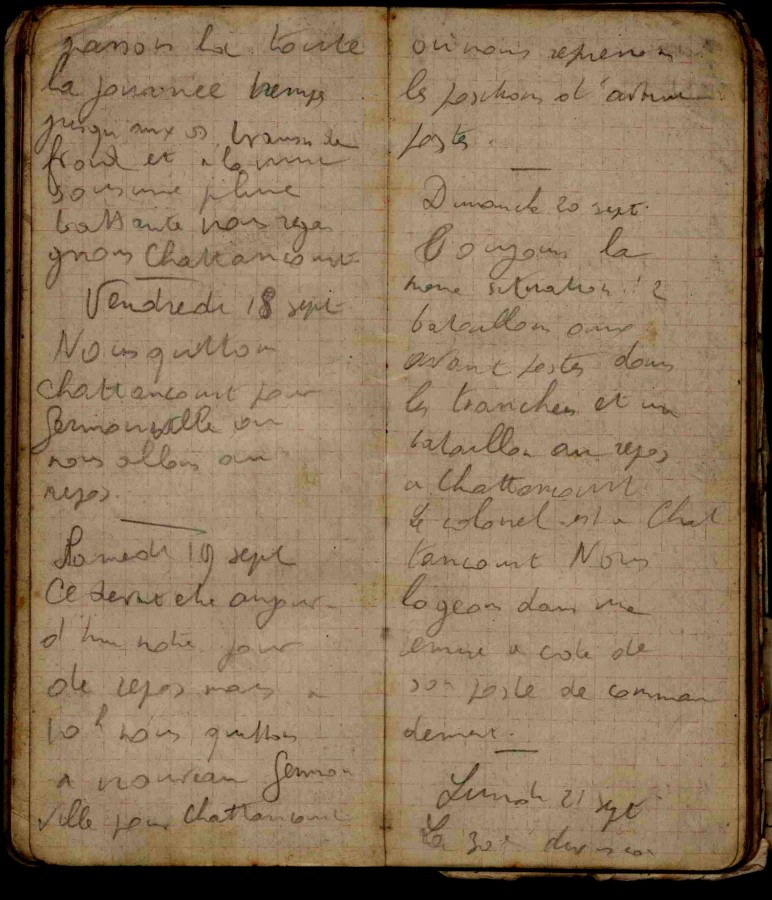 passons la toute
la journee tremps
jusqu aux os, transis de
froid et a la nuit
sous une pluie
battante nous rega
gnons Chattancourt
Vendredi 18 sept
Nous quittons
chattancourt pour
Germonville ou
nous allons au
repos.
Samedi 19 sept
Ce devait etre aujour
d'hui notre jour
de repos mais a
10h nous quittons
a nouveau Germon
ville pour Chattancourt
où nous reprenons
les positions d'avant
postes.
Dimanche 20 sept.
Toujours la
meme situation ! 2
bataillons aux
avant postes dans
les tranchees et un
bataillon au repos
a Chattancourt
Le colonel est a Chat
tancourt Nous
logeons dans une
ecurie a cote de
son poste de comman
dement.
Lundi 21 sept
La 30e division